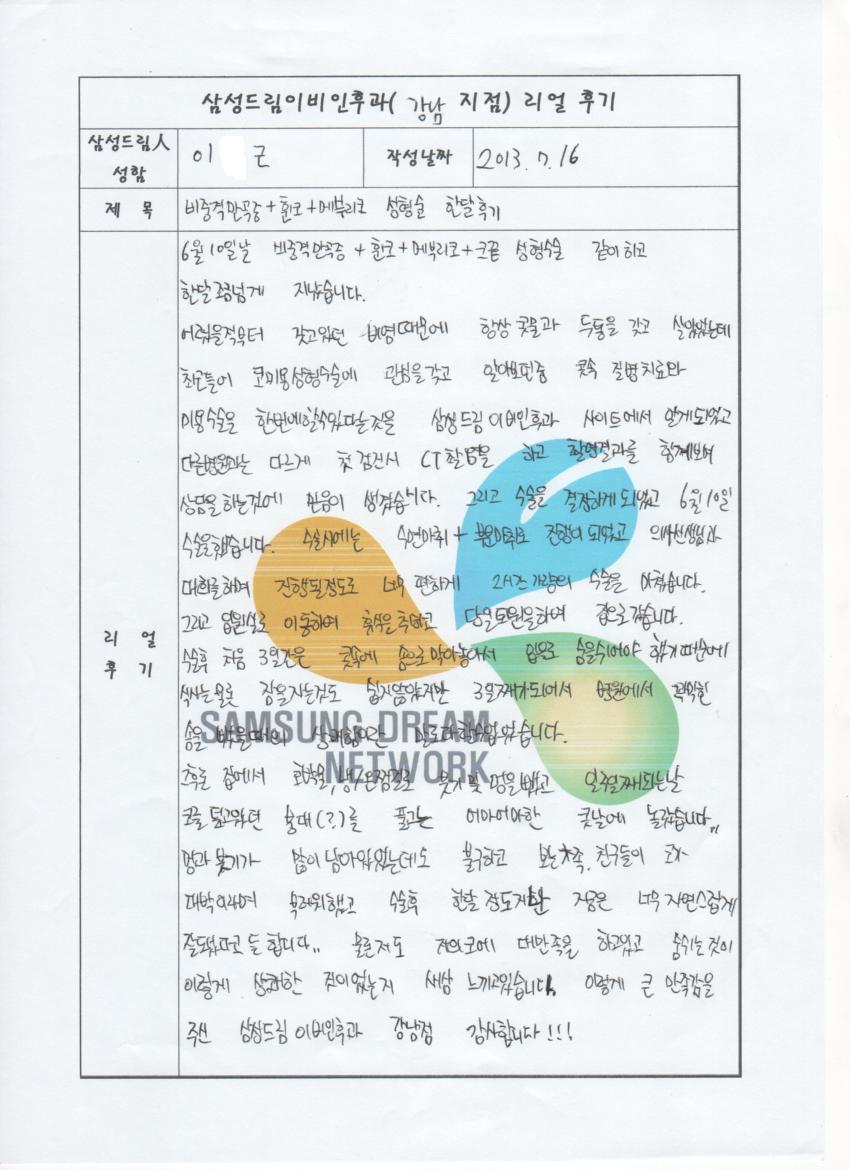 삼성드림이비인후과( 강남 지점) 리얼 후기
삼성드림人 성함
이 근
작성날짜
2013. 7. 16
제 목
비중격만곡증 + 휜코 + 메부리코 성형술 한달후기
리 얼 후 기
6월 10일날 비중격만곡증 + 휜코 + 메부리코 + 코끝 성형수술 같이 하고
한달 조금넘게 지났습니다.
어렸을적부터 갖고있던 비염때문에 항상 콧물과 두통을 갖고 살았었는데
최근들어 코미용성형수술에 관심을 갖고 알아보던중 콧속 질병치료와
미용수술을 한번에 할수있다는것을 삼성드림 이비인후과 사이트에서 알게되었고
다른병원과는 다르게 첫 검진시 CT촬영을 하고 촬영결과를 함께보며
상담을 하는것에 믿음이 생겼습니다. 그리고 수술을 결정하게 되었고 6월 10일
수술을했습니다. 수술시에는 수면마취 + 부분마취로 진행이 되었고 의사선생님과
대화를하며 진행될정도로 너무 편하게 2시간 가량의 수술을 마쳤습니다.
그리고 입원실로 이동하여 휴식을 취하고 당일퇴원을하여 집으로 갔습니다.
수술후 처음 3일간은 콧속에 솜으로 막아놓아서 입으로 숨을쉬어야 했기 때문에
식사는 물론 잠을자는것도 쉽지않았지만 3일째가되어서 병원에서 꽉막힌
솜을 뺐을때의 상쾌함이란 말로다할수없었습니다.
SAMSUNG DREAM
NETWORK
추후로 집에서 호박즙, 냉/온찜질로 붓기 및 멍을빼고 일주일째되는날
코를 덮고있던 붕대(?)를 풀고는 어마어마한 콧날에 놀랐습니다..
멍과 붓기가 많이 남아있었는데도 불구하고 보는가족, 친구들이 코가
대박이라며 부러워했고 수술후 한달 정도지난 지금은 너무 자연스럽게
잘되었다고 들 합니다.. 물론저도 저의코에 대만족을 하고있고 숨쉬는것이
이렇게 상쾌한 것이었는지 새삼 느끼고있습니다. 이렇게 큰 만족감을
주신 삼성드림 이비인후과 강남점 감사합니다!!!